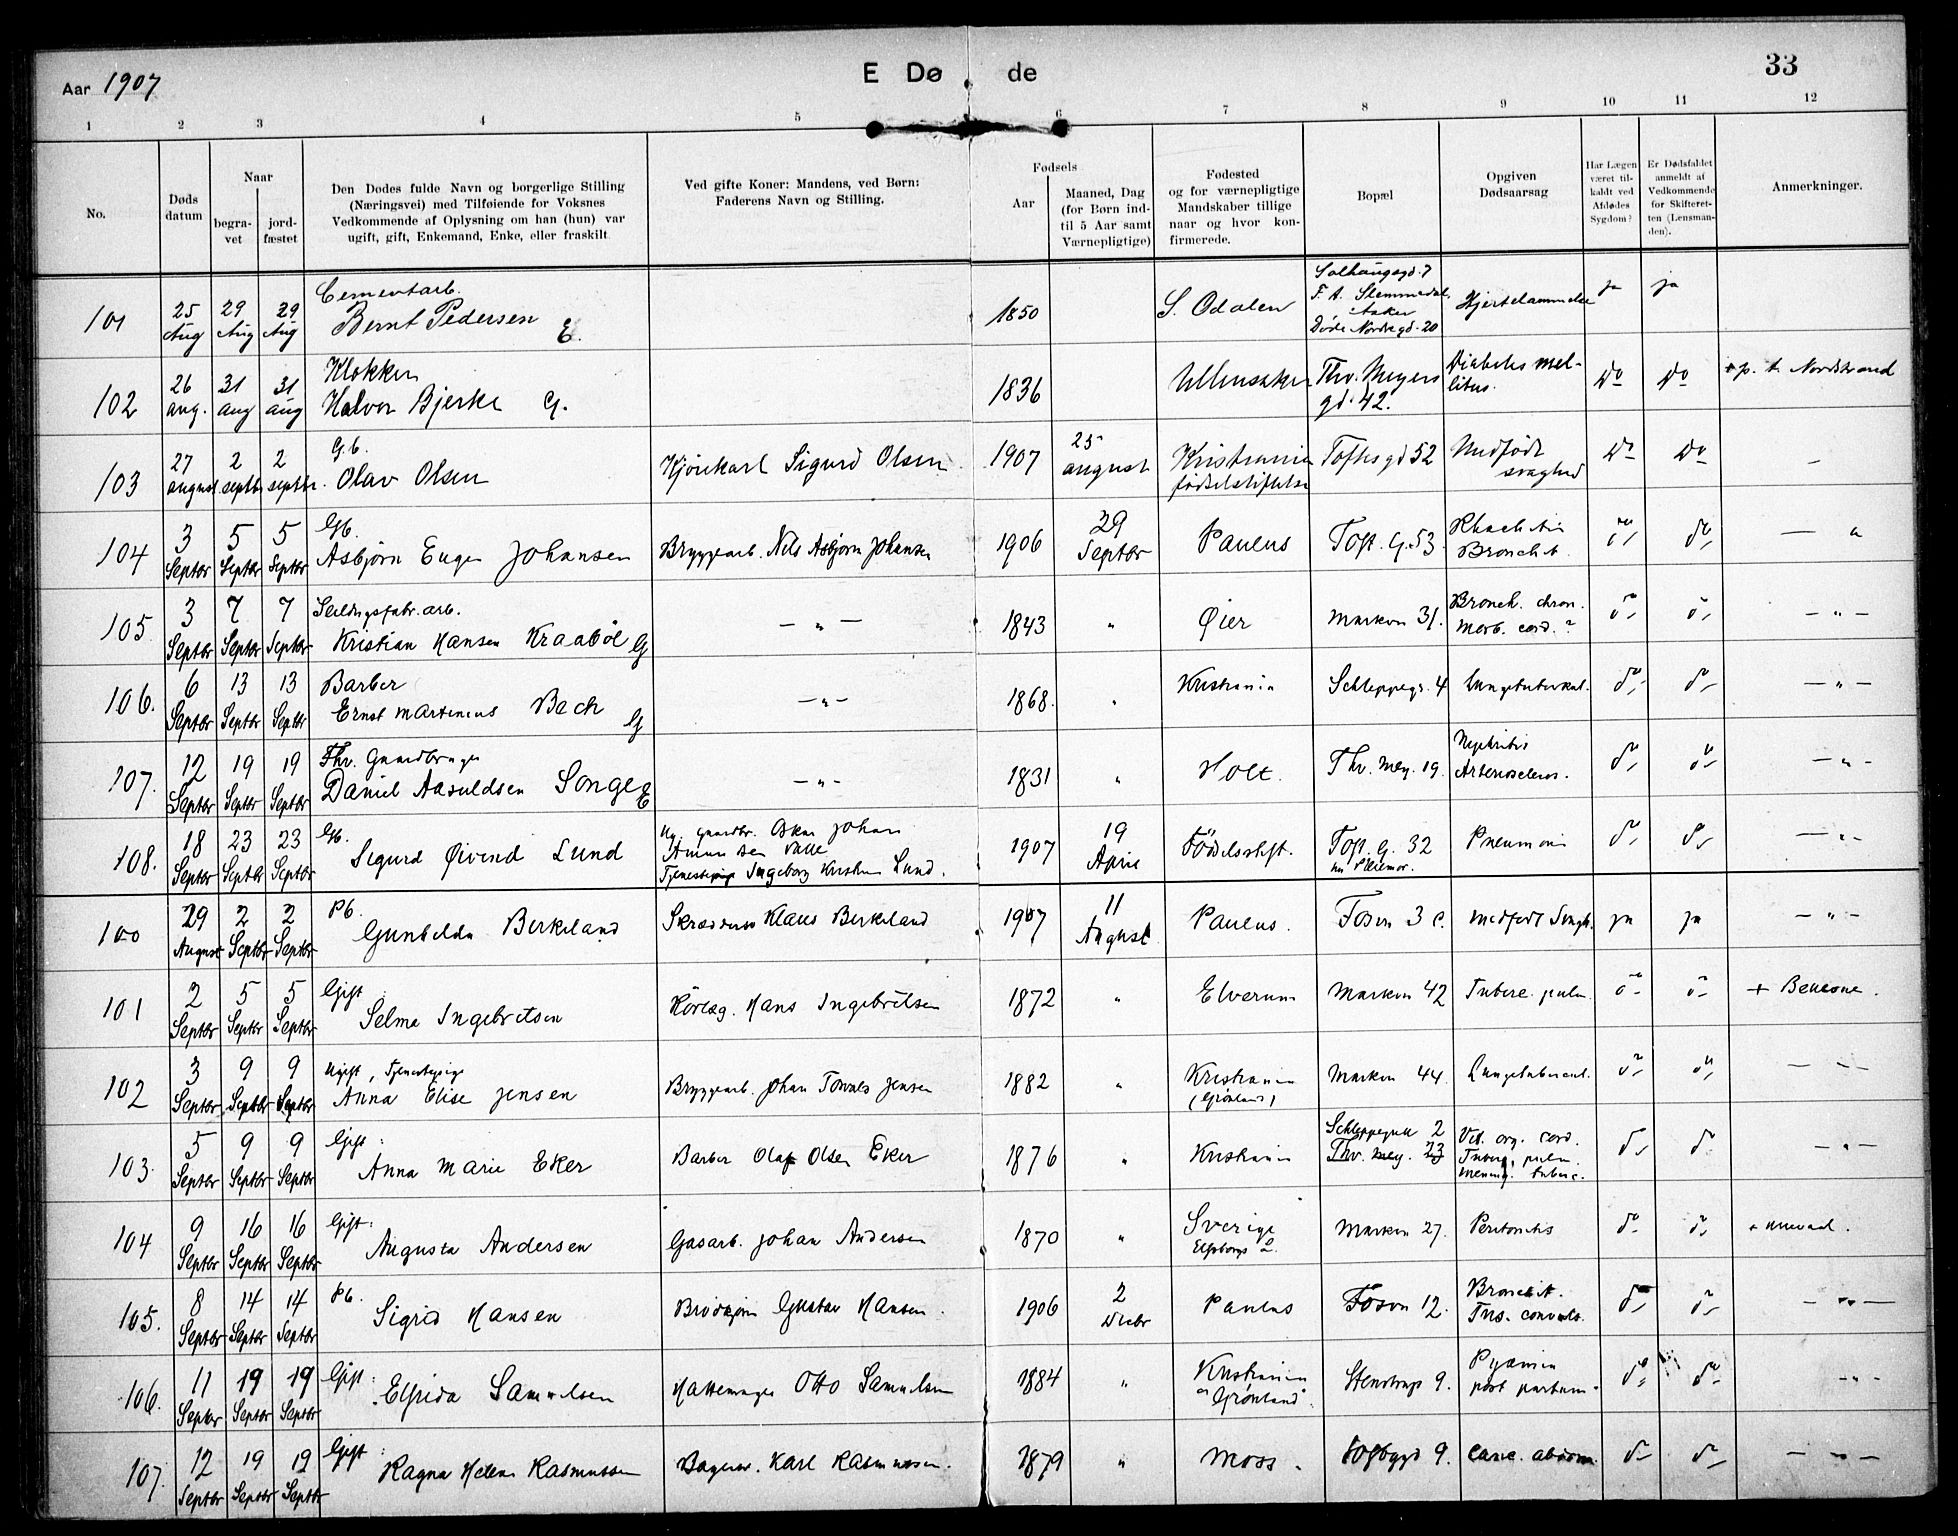 Aar 1907
E Dø de
33
1 2 3 4 5 6 7 8 9 10 11 12
No.
Døds datum
Naar
begra- vet
jord- fæstet
Den Dødes fulde Navn og borgerlige Stilling
(Næringsvei) med Tilføiende for Voksnes
Vedkommende af Oplysning om han (hun) var
ugift, gift, Enkemand, Enke, eller fraskilt
Ved gifte Koner: Mandens, ved Børn:
Faderens Navn og Stilling.
Fødsels
Aar
Maaned, Dag
(for Børn ind-
til 5 Aar samt
Værnepligtige)
Fødested
og for værnepligtige
Mandskaber tillige
naar og hvor kon-
firmerede.
Bopæl
Opgiven
Dødsaarsag
Har Lægen
været til-
kaldt ved
Afdødes
Sygdom?
Er Dødsfaldet
anmeldt af
Vedkommende
for Skifteret-
ten (Lensman-
den).
Anmerkninger.
101 25 Aug 29 Aug 29 Aug Cementarb. Bernt Pedersen E. 1850 S. Odalen Solhaugsgd. 7 F. A. Aker Døde Nordregd. 20 Hjertelammelse ja ja
102 26 aug. 31 aug 31 aug Klokker Halvor Bjerke G. 1836 Ullensaker Thv. Meyers gd. 42. Diabetes mel- litus. Do Do + p. t. Nordstrand
103 27 august 2 septbr 2 septbr. G.b. Olav Olsen Kjørekarl Sigurd Olsen. 1907 25 august Kristiania fødselsstiftelse Toftesgd 52 Medfødt svaghed Do Do –
104 3 Septbr 5 Septbr 5 Septbr Gb. Asbjørn Eugen Johansen Bryggearb. Nils Asbjørn Johansen 1906 29 Septbr Paulus Toft. G. 53. Rhachitis Bronchit. do, do, — "
105. 3 Septbr 7 Septbr 7 Septbr Kristian Hansen Kraabøl G — " — 1843 " Øier Markvn 31. Bronch. chron. Morb. cord.? do, do, — " —
106. 6 Septbr 13 Septbr 13 Septbr Barber Ernst Martinius Bech G — " — 1868. " Kristiania Schleppegr. 4 Lungetuberkul. do, do, — " —
107. 12 Septbr 19 Septbr 19 Septbr Fhv. Gaardbruger Daniel Aasuldsen Songe E — " — 1831 " Holt. Thv. Mey. 19. Nephritis Arterioscleros. do, do, — " —
108. 18 Septbr 23 Septbr 23 Septbr Gb. Sigurd Øivind Lund Ug. Gaardbr. Oskar Johan Tjenestepige Ingeborg Kristine Lund. 1907 19 April Fødselsstift. Toft. G. 32 hos Pleiemor. Pneumoni do, do, — " —
100 29 August 2 Septbr 2 Septbr Pb. Gunhilda Berkeland Skrædder Klaus Berkeland 1907 11 August Paulus. Fosvn 3 c. Medfødt Svagh. ja ja — " —
101 2 Septbr 5 Septbr 5 Septbr Gift Selma Ingebretsen Hans Ingebretsen 1872 " Elverum Markvn 42 Tuberc. pulm. do do
102 3 Septbr 9 Septbr 9 Septbr Ugift, Tjenestepige Anna Elise Jensen Bryggearb. Johan Jensen 1882 " Kristiania (Grønland) Markvn 44. Lungetubercul. do, do, — " —
103. 5 Septbr 9 Septbr 9 Septbr Gift: Anna Marie Eker Barber Olaf Olsen Eker 1876 " Kristiania Schleppegrell 2 Thv. Mey. 23 Vit. org. cord. Tuberc. pulm. Mening. tuberc. do, do — " —
104 9 Septbr 16 Septbr 16 Septbr Gift: Augusta Andersen Gasarb. Johan Andersen 1870 " Sverige Elfsborgs L. Markvn 27. Peritonitis do, do, + Ullevaal.
105. 8 Septbr 14 Septbr 14 Septbr Pb. Sigrid Hansen Gustav Hansen. 1906 2 Decbr Paulus Fosvn 12. Bronchit. Tus. convuls. do, do, — " —
106. 11 Septbr 19 Septbr 19 Septbr Gift: Elfrida Samuelsen Hattemager Otto Samuelsen 1884 " Kristiania "Grønland". Stenstrup 9. Pyæmia post partum. do, do, — " —
107. 12 Septbr 19 Septbr 19 Septbr Gift: Ragna Helene Rasmussen Bagersv. Karl Rasmussen. 1879 " Moss. 9. Carc. abdom. do, do, — " —